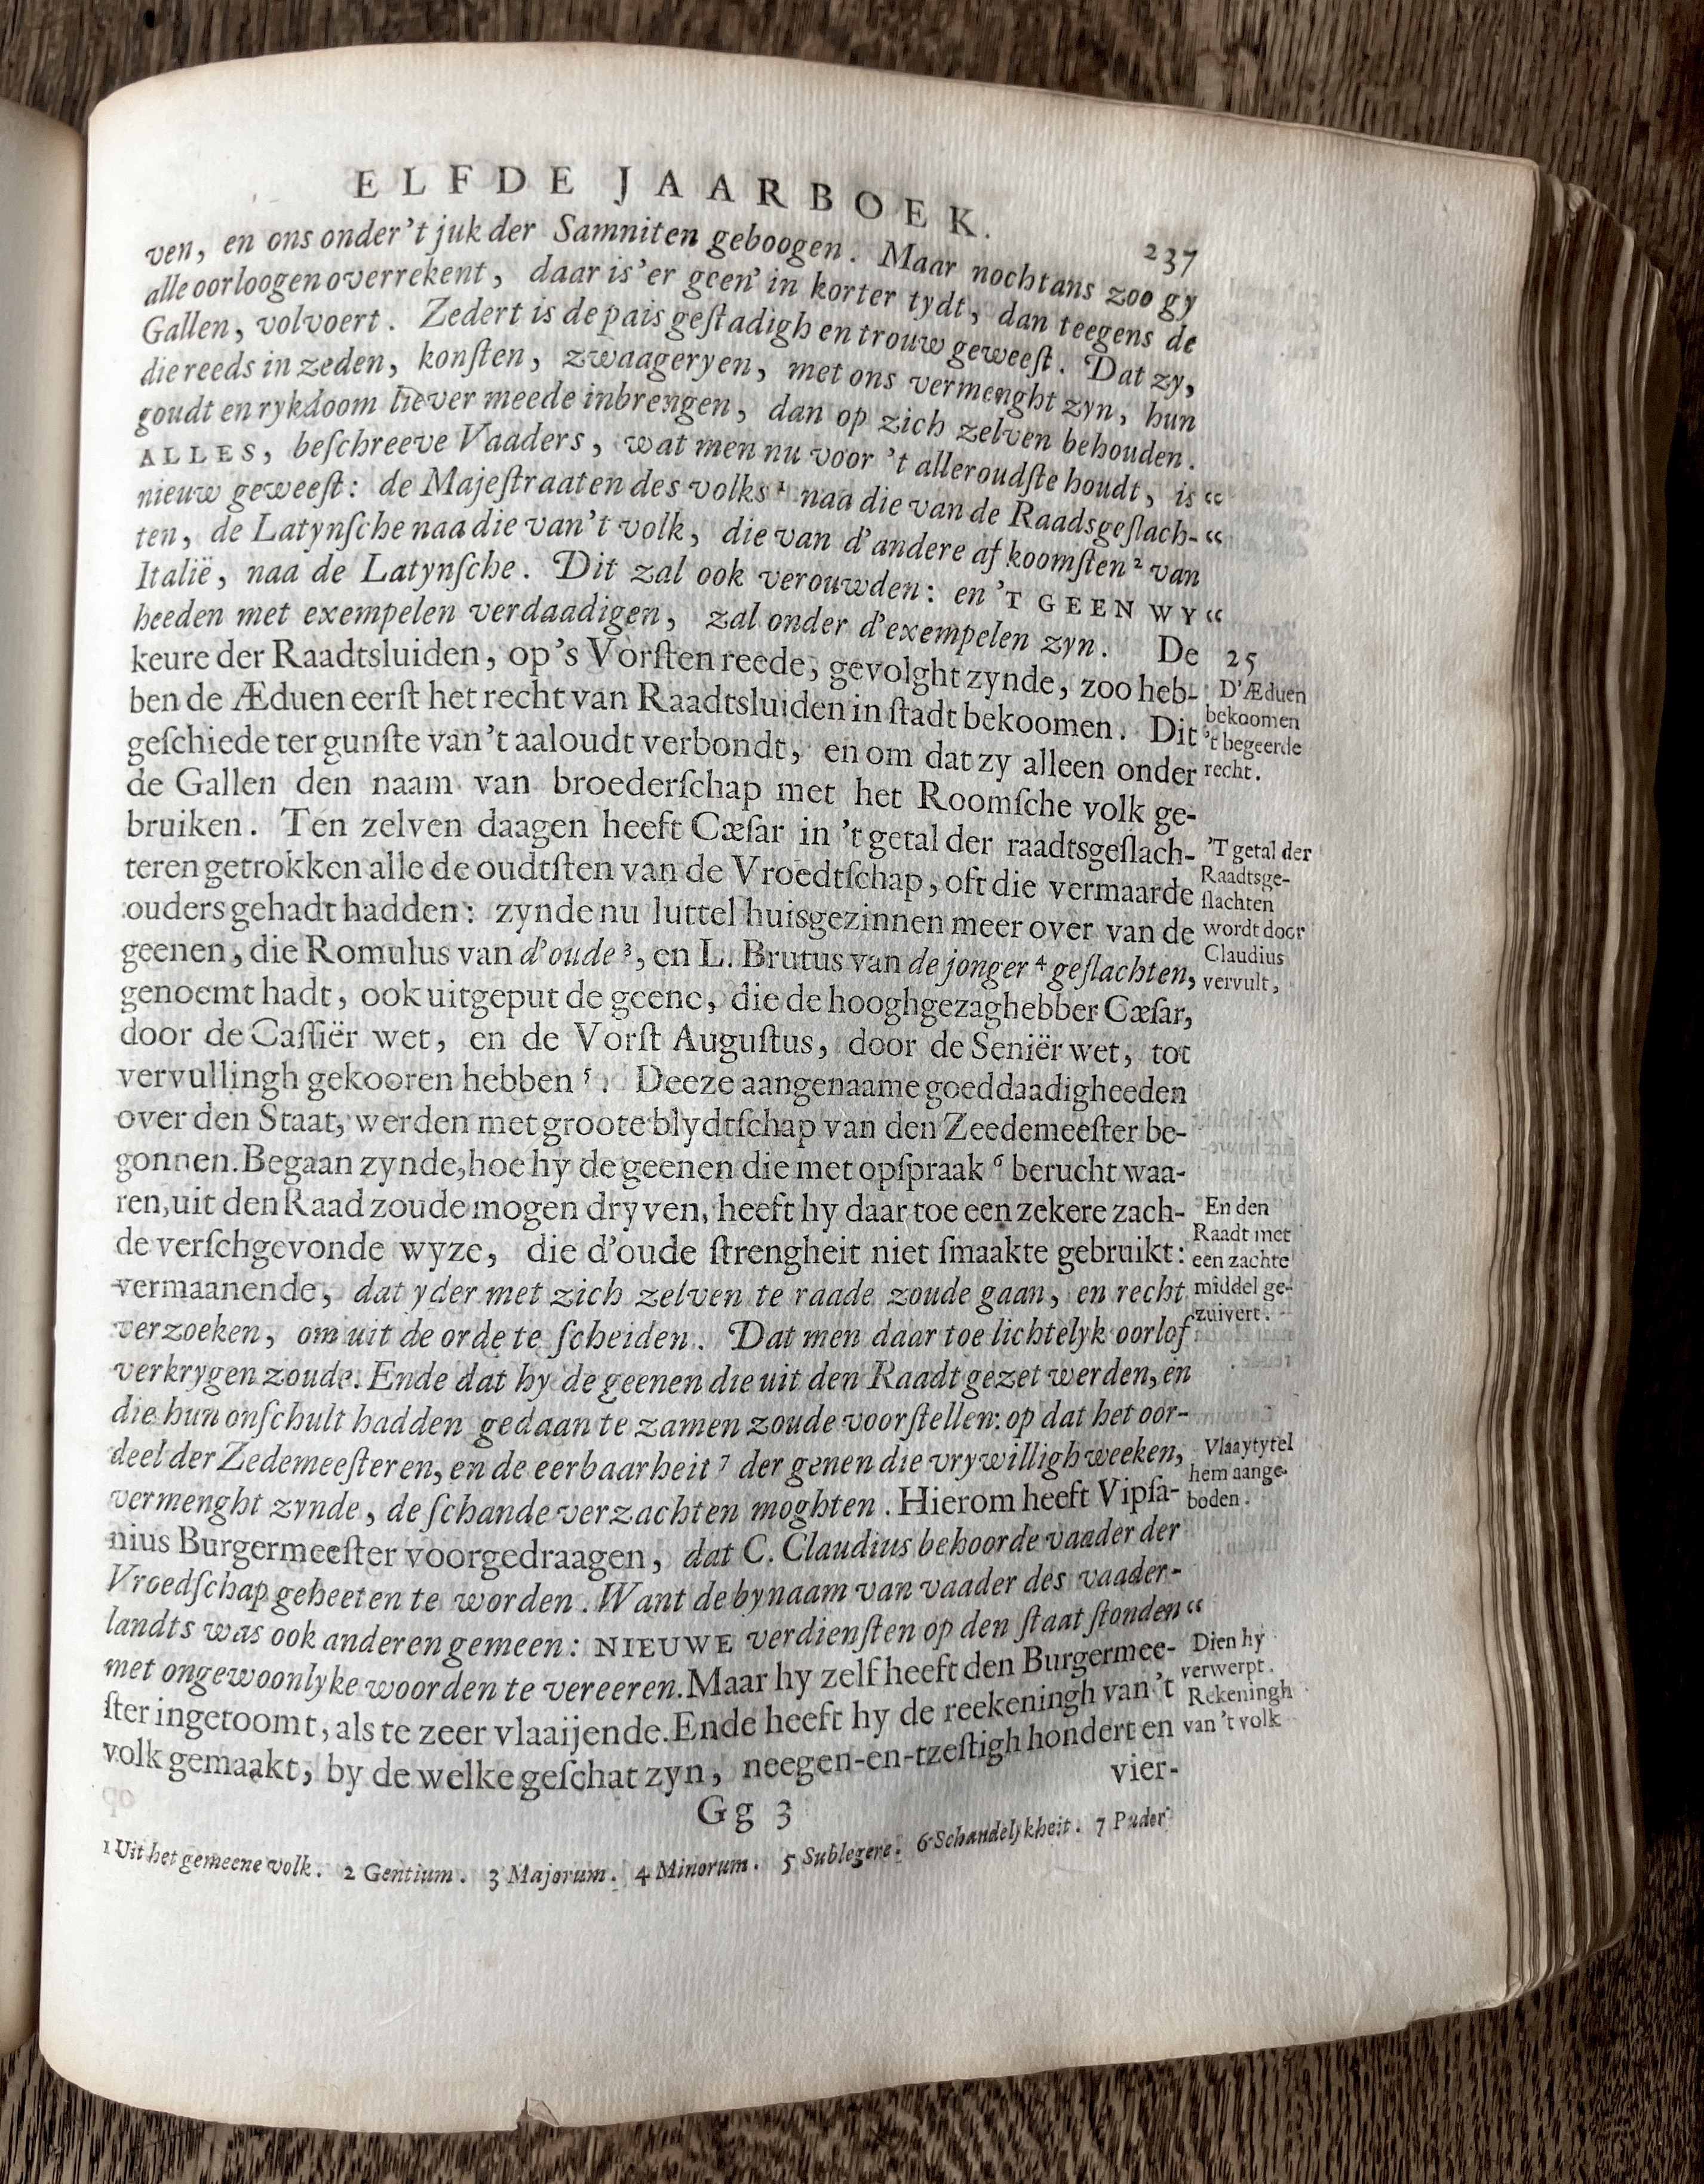 ELFDE JAARBOEK.
237
ven, en ons onder 't juk der Samniten geboogen. Maar nochtans zoo gy
alle oorloogen overrekent, daar is'er geen' in korter tydt, dan teegens de
Gallen, volvoert. Zedert is de pais geſtadigh en trouw geweeſt. Dat zy,
die reeds in zeden, konſten, zwaageryen, met ons vermenght zyn, hun
goudt en rykdoom liever meede inbrengen, dan op zich zelven behouden.
ALLES, beſchreeve Vaaders, wat men nu voor 't alleroudſte houdt, is “
nieuw geweeſt: de Majeſtraaten des volks ¹ naa die van de Raadsgeſlach- “
ten, de Latynſche naa die van't volk, die van d'andere afkoomſten ² van
Italië, naa de Latynſche. Dit zal ook verouwden: en 'T GEEN WY “
heeden met exempelen verdaadigen, zal onder d'exempelen zyn. De
25
keure der Raadtsluiden, op 's Vorſten reede, gevolght zynde, zoo heb-
D'Æduen
ben de Æduen eerſt het recht van Raadtsluiden in ſtadt bekoomen. Dit
bekoomen
geſchiede ter gunſte van't aaloudt verbondt, en om dat zy alleen onder
't begeerde
recht.
de Gallen den naam van broederſchap met het Roomſche volk ge-
bruiken. Ten zelven daagen heeft Cæſar in 't getal der raadtsgeſlach-
'T getal der
teren getrokken alle de oudtſten van de Vroedtſchap, oft die vermaarde
Raadtsge-
ſlachten
ouders gehadt hadden: zynde nu luttel huisgezinnen meer over van de
wordt door
geenen, die Romulus van d'oude ³, en L. Brutus van de jonger ⁴ geſlachten,
Claudius
vervult,
genoemt hadt, ook uitgeput de geene, die de hooghgezaghebber Cæſar,
door de Caſſiër wet, en de Vorſt Auguſtus, door de Seniër wet, tot
vervullingh gekooren hebben ⁵. Deeze aangenaame goeddaadigheeden
over den Staat, werden met groote blydtſchap van den Zeedemeeſter be-
gonnen. Begaan zynde, hoe hy de geenen die met opſpraak ⁶ berucht waa-
ren, uit den Raad zoude mogen dryven, heeft hy daar toe een zekere zach-
En den
Raadt met
de verſchgevonde wyze, die d'oude ſtrengheit niet ſmaakte gebruikt:
een zachte
vermaanende, dat yder met zich zelven te raade zoude gaan, en recht
middel ge-
zuivert.
verzoeken, om uit de orde te ſcheiden. Dat men daar toe lichtelyk oorlof
verkrygen zoude. Ende dat hy de geenen die uit den Raadt gezet werden, en
die hun onſchult hadden gedaan te zamen zoude voorſtellen: op dat het oor-
deel der Zedemeeſteren, en de eerbaarheit ⁷ der genen die vrywilligh weeken,
Vlaaytytel
hem aange-
vermenght zynde, de ſchande verzachten moghten. Hierom heeft Vipſa-
boden.
nius Burgermeeſter voorgedraagen, dat C. Claudius behoorde vaader der
Vroedſchap geheeten te worden. Want de bynaam van vaader des vaader-
landts was ook anderen gemeen: NIEUWE verdienſten op den ſtaat ſtonden “
met ongewoonlyke woorden te vereeren. Maar hy zelf heeft den Burgermee-
Dien hy
verwerpt.
ſter ingetoomt, als te zeer vlaaijende. Ende heeft hy de reekeningh van 't
Rekeningh
volk gemaakt, by de welke geſchat zyn, neegen-en-tzeſtigh hondert en
van 't volk
vier-
Gg 3
1 Uit het gemeene volk. 2 Gentium. 3 Majorum. 4 Minorum. 5 Sublegere. 6 Schandelykheit. 7 Pudor